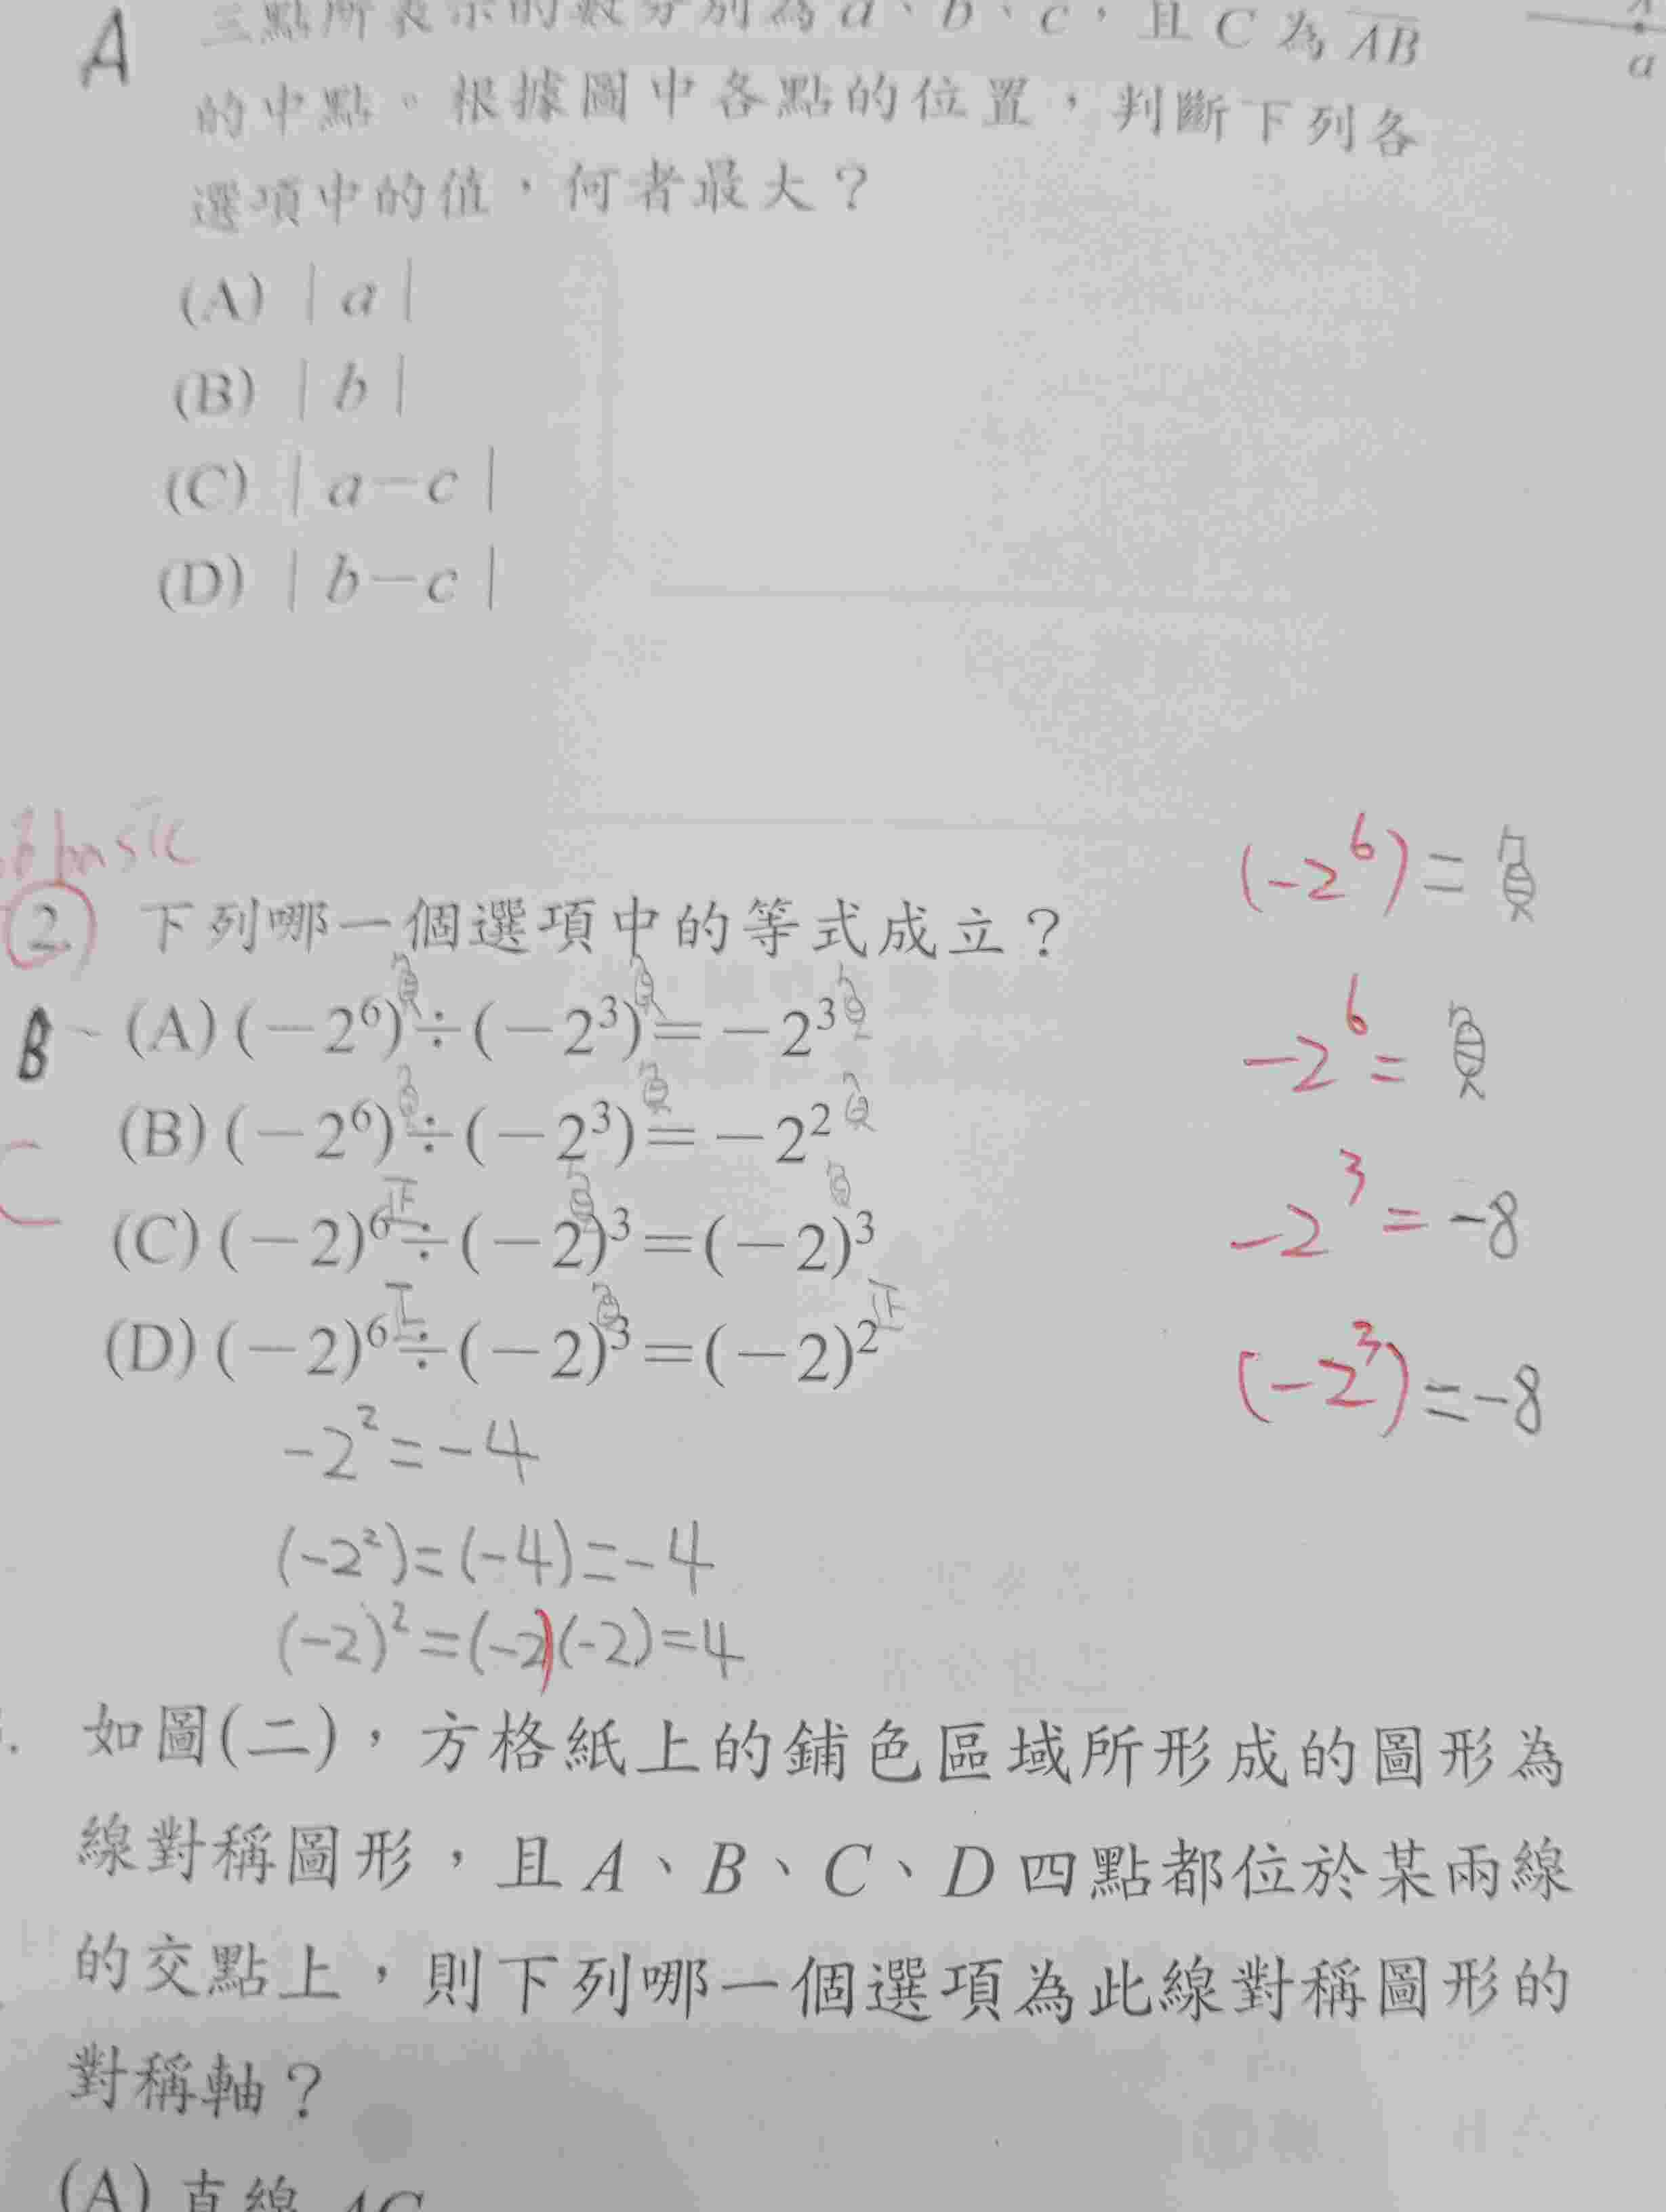 A
三點所表示的數分別為 a、b、c，且 C 為 AB
a
的中點。根據圖中各點的位置，判斷下列各
選項中的值，何者最大？
(A) | a |
(B) | b |
(C) | a－c |
(D) | b－c |
basic
(-2⁶) = 負
2. 下列哪一個選項中的等式成立？
B
(A) (－2⁶)負÷(－2³)負＝－2³負
-2⁶ = 負
(B) (－2⁶)負÷(－2³)負＝－2²負
C
(C) (－2)⁶正÷(－2)³負＝(－2)³負
-2³ = -8
(D) (－2)⁶正÷(－2)³負＝(－2)²正
(-2³) = -8
-2² = -4
(-2²) = (-4) = -4
(-2)² = (-2)(-2) = 4
如圖(二)，方格紙上的鋪色區域所形成的圖形為
線對稱圖形，且 A、B、C、D 四點都位於某兩線
的交點上，則下列哪一個選項為此線對稱圖形的
對稱軸？
(A) 直線 AC